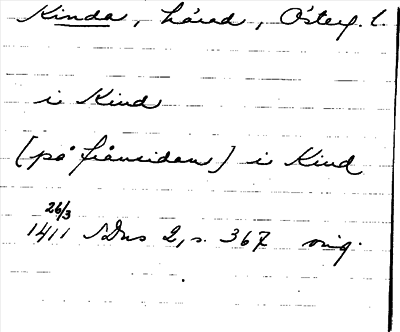 Kinda, härad, Österg. l.
i Kind
[på frånsidan] i Kind
26/3
1411 SDns 2, s. 367 orig.